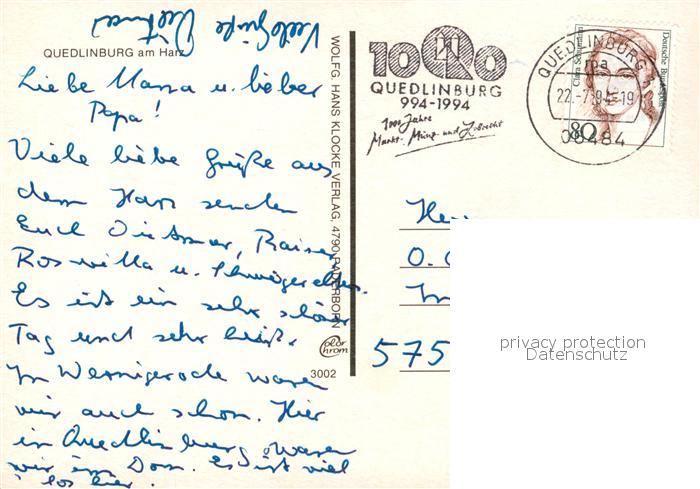 Viele Grüße Dietmar
QUEDLINBURG am Harz
Liebe Mama u. lieber
Papa!
Viele liebe Grüße aus
dem Harz senden
Euch Dietmar, Rainer,
Roswitha u. Schwiegereltern.
Es ist ein sehr schöner
Tag und sehr heiß.
In Wernigerode waren
wir auch schon. Hier
in Quedlinburg waren
wir im Dom. Es ist viel
los hier.
WOLFG. HANS KLOCKE VERLAG, 4790 PADERBORN
Color
Chrom
3002
1000
QUEDLINBURG
994-1994
1000 Jahre
Markt-, Münz- und Zollrecht
QUEDLINBURG
ma
22.-7.94-19
06484
Deutsche Bundespost
Clara Schumann
80
O.
575
privacy protection
Datenschutz